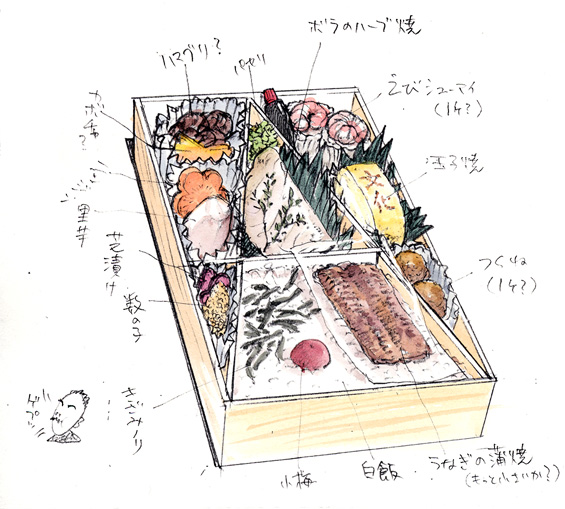 ボラのハーブ焼
ハマグリ?
パセリ
えびシューマイ
(1ケ?)
カボチャ?
玉子焼
にんじん
里芋
芝漬け
数の子
つくね
(1ケ?)
きざみノリ
ゲプッ
小梅
白飯
うなぎの蒲焼
(もっと小さいか?)